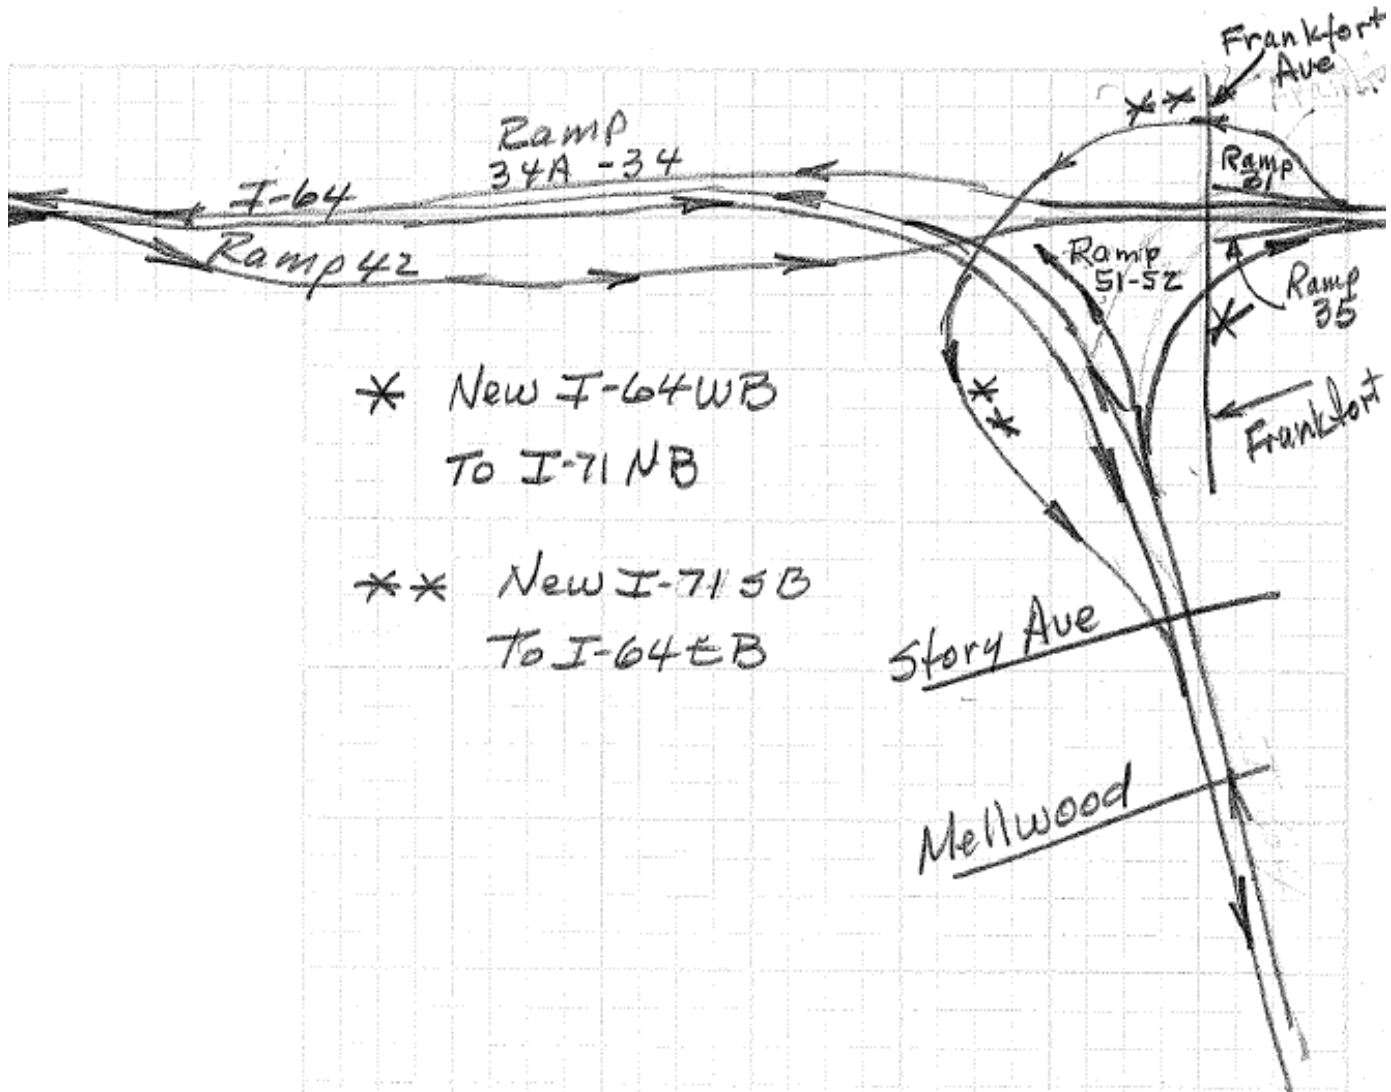 Frankfort
Ave
**
Ramp
34A-34
Ramp
I-64
Ramp 42
Ramp
51-52
Ramp
35
*
* New I-64 WB
To I-71 NB
**
Frankfort
** New I-71 SB
To I-64 EB
Story Ave
Mellwood